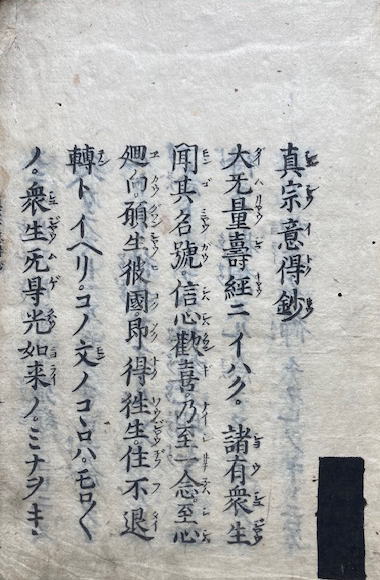 真宗意得鈔
大无量壽經ニイハク。諸有衆生
聞其名號。信心歡喜。乃至一念。至心
廻向。願生彼國。即得徃生。住不退
轉トイヘリ。コノ文ノコヽロハ。モロ〱
ノ。衆生无㝵光如来ノ。ミナヲキヽ